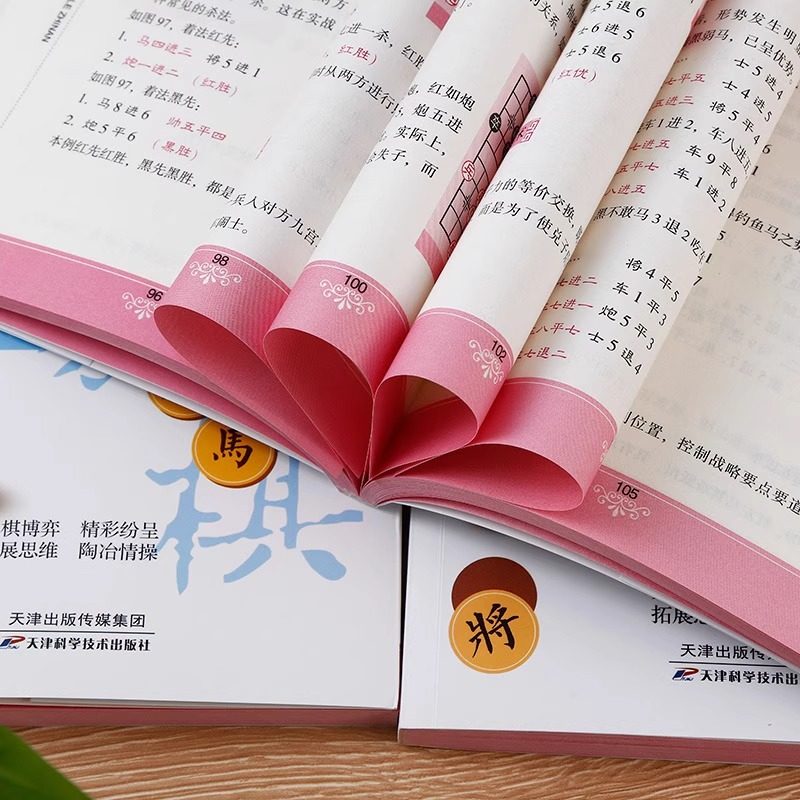 LE ZHINAN
种常见的杀法。这在实战
如图97，着法红先：
1. 马四进三 将5进1
2. 炮一进二 (红胜)
如图97，着法黑先：
1. 马8进6 帅五平四
2. 炮5平6 (黑胜)
本例红先红胜，黑先黑胜，都是兵人对方九宫
96
98
进一杀，红胜
时从两方进行
100
红如炮
炮五进
实际上，
失子，而
102
士5退6
士6进5
士5退6
红优)
力的等价交换，
而是为了使兑子
形势发生明
黑弱马，已呈优势。
士5退4
士4进5
将5平4
车1进2，车八进五
车9平8
车1进2
黑不敢马3退2吃
钓鱼马之势
将4平5
车1平3
炮5平3
士5退4
位置，控制战略要点要道
105
馬
棋
棋博弈 精彩纷呈
展思维 陶冶情操
天津出版传媒集团
天津科学技术出版社
將
拓展思
天津出版传
天津科学技术出